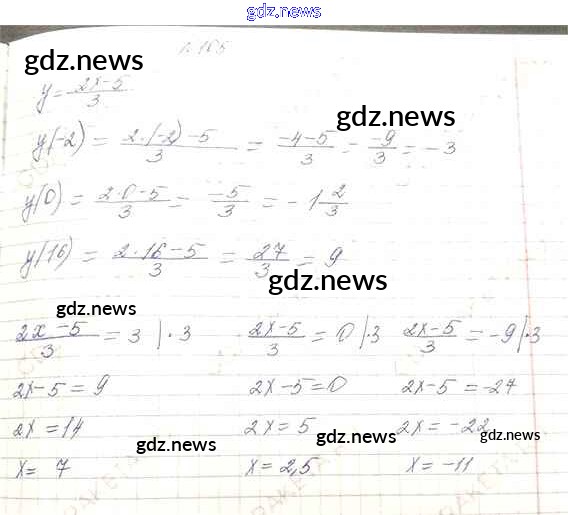 gdz.news
gdz.news
y = \frac{2x-5}{3}
gdz.news
y(-2) = \frac{2·(-2)-5}{3} = \frac{-4-5}{3} = \frac{-9}{3} = -3
y(0) = \frac{2·0-5}{3} = \frac{-5}{3} = -1\frac{2}{3}
y(16) = \frac{2·16-5}{3} = \frac{27}{3} = 9
gdz.news
gdz.news
\frac{2x-5}{3} = 3 |·3 \frac{2x-5}{3} = 0 |·3 \frac{2x-5}{3} = -9 |·3
2x-5=9 2x-5=0 2x-5=-27
2x=14 2x=5 2x=-22
gdz.news gdz.news gdz.news
x= 7 x=2,5 x=-11